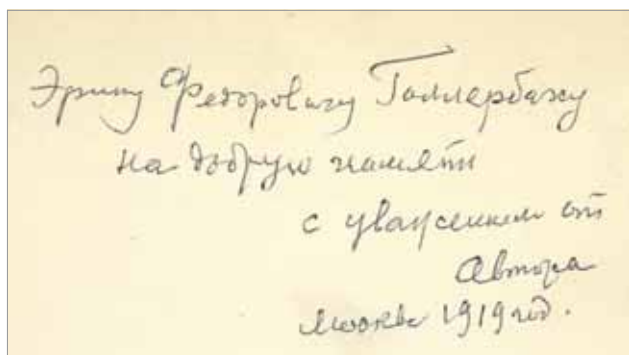 Эриху Федоровичу Голлербаху
на добрую память
с уважением от
Автора
Москва 1919 год.